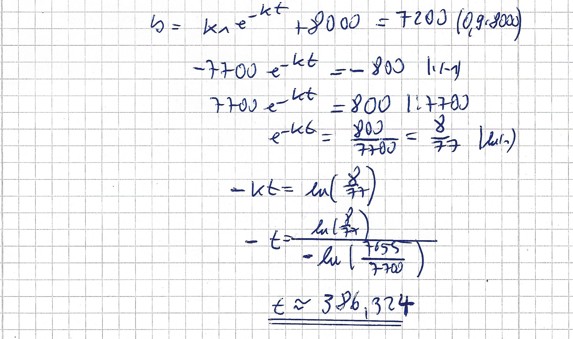 b = k₁ e^-kt + 8000 = 7200 (0,9·8000)
-7700 e^-kt = -800 |:(-1)
7700 e^-kt = 800 |:7700
e^-kt = 800/7700 = 8/77 |ln()
-kt = ln(8/77)
-t = ln(8/77) / -ln(7655/7700)
t ≈ 386,324